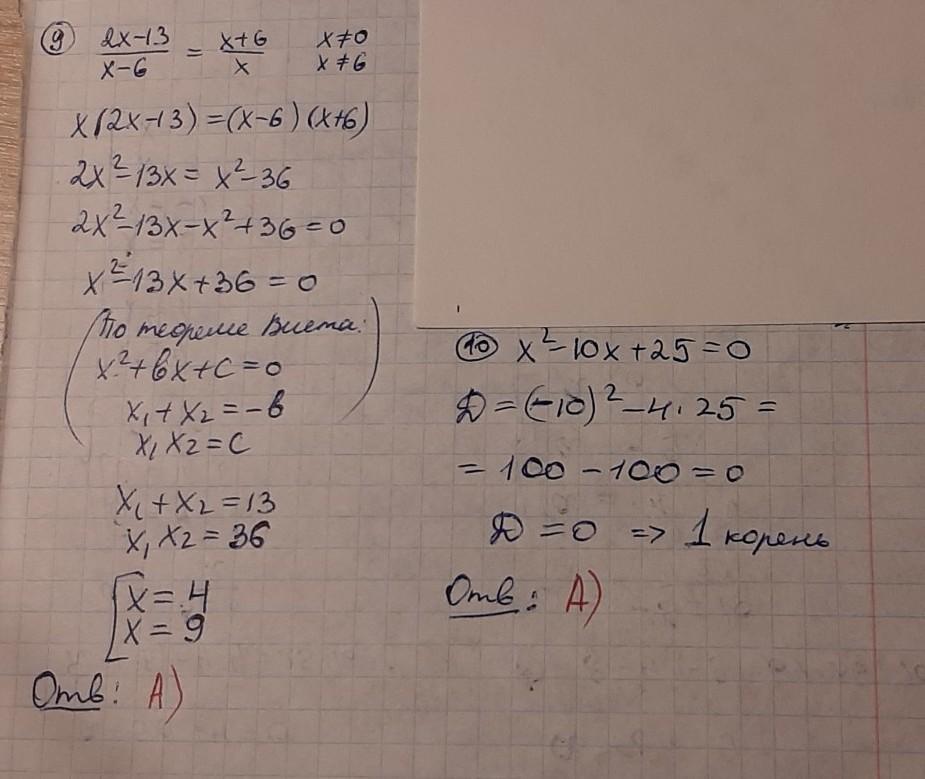 9 (2x-13)/(x-6) = (x+6)/x x≠0
x≠6
x(2x-13)=(x-6)(x+6)
2x²-13x=x²-36
2x²-13x-x²+36=0
x²-13x+36=0
(По теореме Виета:
x²+bx+c=0
x₁+x₂=-b
x₁x₂=c)
x₁+x₂=13
x₁x₂=36
[x=4
x=9
Отв: А)
10 x²-10x+25=0
D=(-10)²-4·25=
=100-100=0
D=0 => 1 корень
Отв: А)